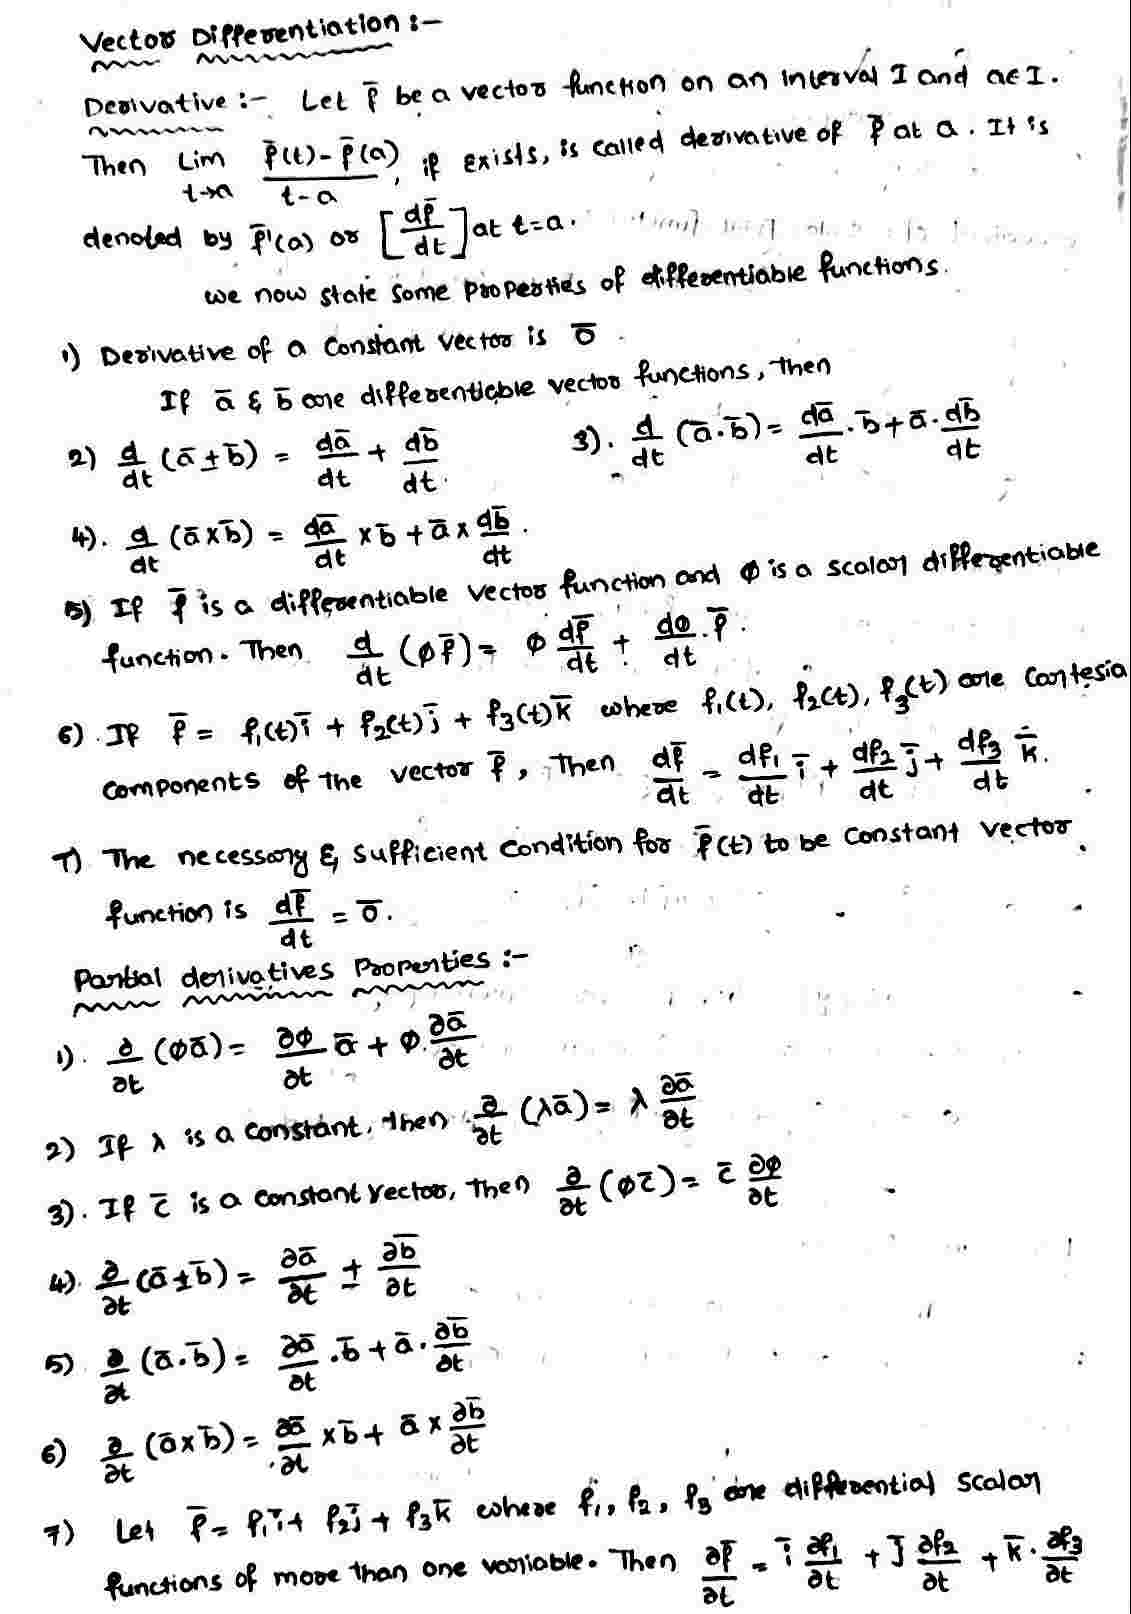 Vector Differentiation :-
Derivative :- Let f̄ be a vector function on an interval I and a∈I.
Then Lim t→a (f̄(t)-f̄(a))/(t-a), if exists, is called derivative of f̄ at a. It is
denoted by f̄'(a) or [df̄/dt] at t=a.
we now state some properties of differentiable functions.
1) Derivative of a constant vector is ō.
If ā & b̄ are differentiable vector functions, then
2) d/dt (ā±b̄) = dā/dt + db̄/dt. 3). d/dt (ā·b̄) = dā/dt · b̄ + ā · db̄/dt
4). d/dt (ā×b̄) = dā/dt × b̄ + ā × db̄/dt.
5) If f̄ is a differentiable vector function and φ is a scalar differentiable
function. Then d/dt (φf̄) = φ df̄/dt + dφ/dt · f̄.
6). If f̄ = f₁(t)ī + f₂(t)j̄ + f₃(t)k̄ where f₁(t), f₂(t), f₃(t) are cartesia
components of the vector f̄, Then df̄/dt = df₁/dt ī + df₂/dt j̄ + df₃/dt k̄.
7) The necessary & sufficient condition for f̄(t) to be constant vector
function is df̄/dt = ō.
Partial derivatives Properties :-
1). ∂/∂t (φā) = ∂φ/∂t ā + φ. ∂ā/∂t
2) If λ is a constant, then ∂/∂t (λā) = λ ∂ā/∂t
3). If c̄ is a constant vector, Then ∂/∂t (φc̄) = c̄ ∂φ/∂t
4). ∂/∂t (ā±b̄) = ∂ā/∂t ± ∂b̄/∂t
5) ∂/∂t (ā·b̄) = ∂ā/∂t · b̄ + ā · ∂b̄/∂t
6) ∂/∂t (ā×b̄) = ∂ā/∂t × b̄ + ā × ∂b̄/∂t
7) Let f̄ = f₁ī + f₂j̄ + f₃k̄ where f₁, f₂, f₃ are differential scalar
functions of more than one variable. Then ∂f̄/∂t = ī ∂f₁/∂t + j̄ ∂f₂/∂t + k̄ · ∂f₃/∂t